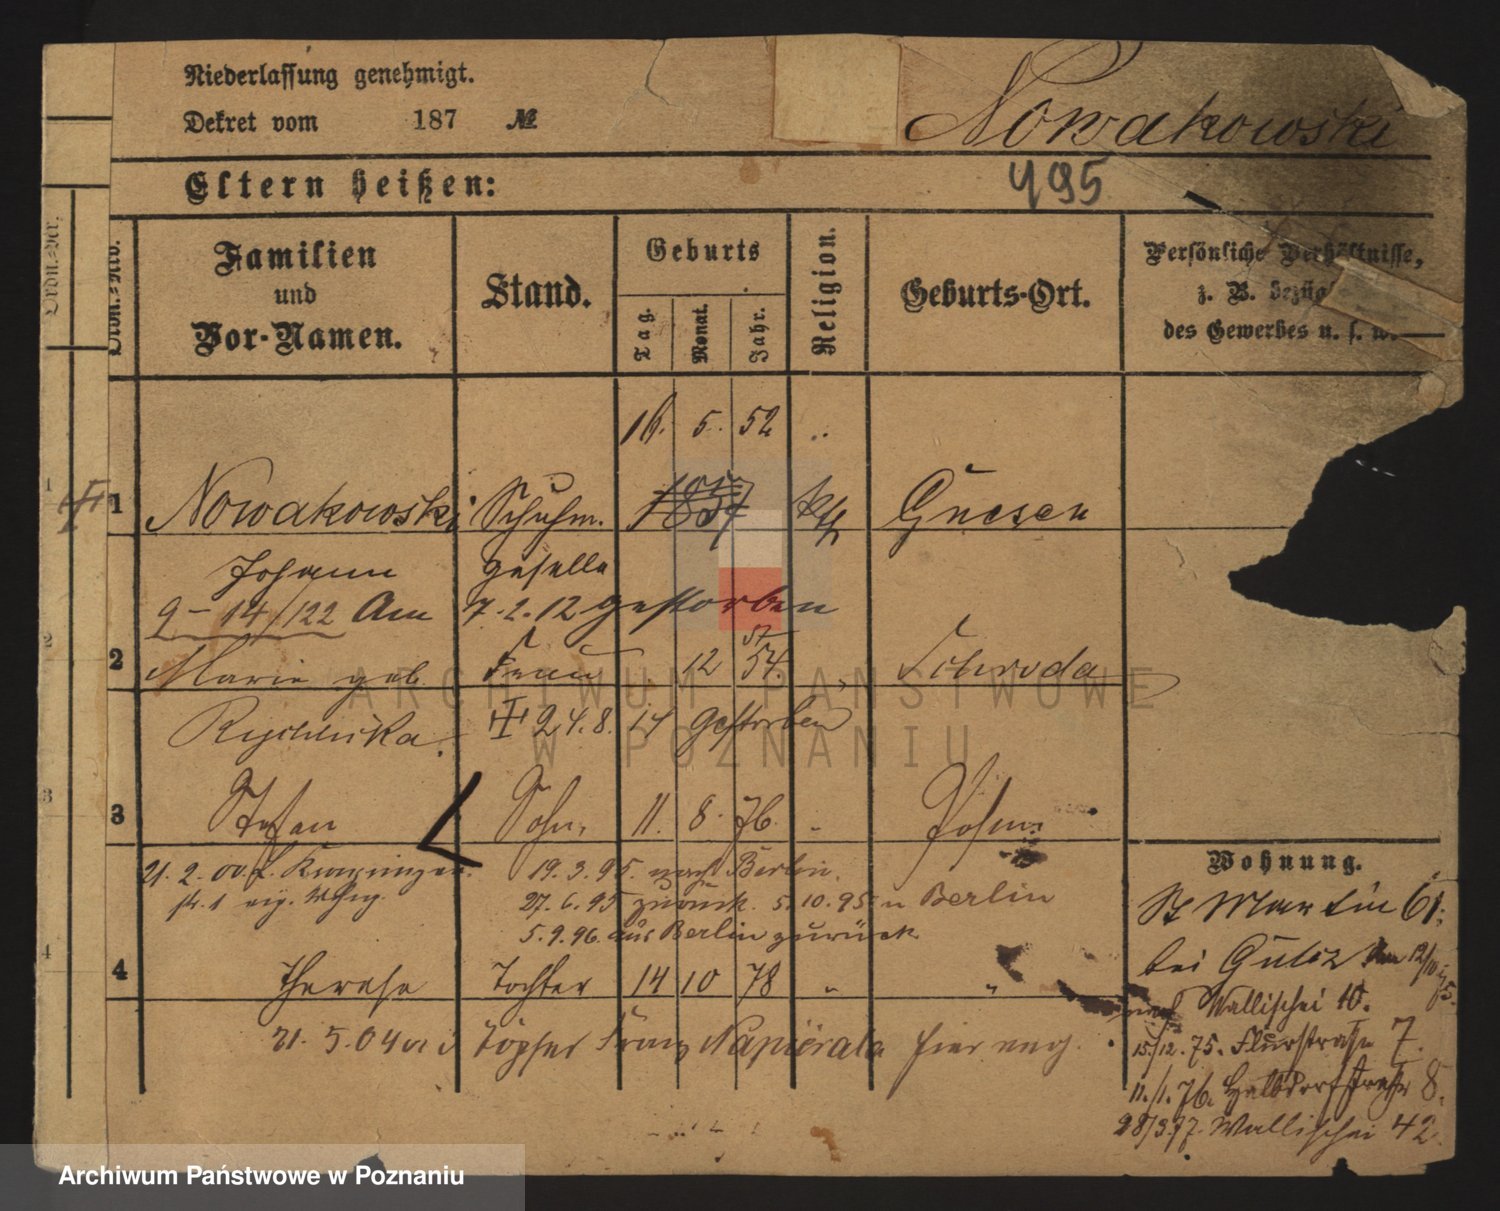 Niederlassung genehmigt.
Dekret vom 187 №
Nowakowski
Eltern heißen:
495
Ordn.-Nro.
Familien
und
Vor-Namen.
Stand.
Geburts
Tag.
Monat.
Jahr.
Religion.
Geburts-Ort.
Persönliche Verhältnisse,
z. B. bezügl
des Gewerbes u. s. w.
16. 5. 52
1 Nowakowski Schuhm. 1857 kth Gnesen
Johann Geselle
9 – 14/122 Am 7.2.12 gestorben
57
2 Marie geb. Frau 12 54. Schroda
Rychlicka. 24.8.14 gestorben
3 Stefan Sohn. 11. 8. 76. Posen
21. 2. 00. 19.3.95. nach Berlin.
str. 1 eig. Whng. 27.6.95 zurück. 5.10.95 n Berlin
5.9.96. aus Berlin zurück
4 Therese Tochter 14 10 78 "
21. 5. 04 Töpfer Franz Napierala hier
Wohnung.
St Martin 61.
bei Am 12/10 75.
nach Wallischei 10.
15/12. 75. Flurstraße 7.
11./1. 76. Halbdorfstraße 8.
28/3. 77. Wallischei 42
ARCHIWUM PAŃSTWOWE
W POZNANIU
Archiwum Państwowe w Poznaniu